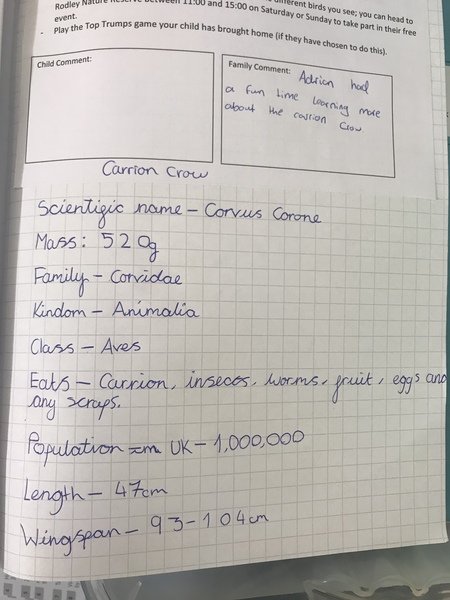 different birds you see; you can head to
Rodley Nature Reserve between 11:00 and 15:00 on Saturday or Sunday to take part in their free
event.
- Play the Top Trumps game your child has brought home (if they have chosen to do this).
Child Comment:
Family Comment: Adrian had
a fun time learning more
about the carrion crow
Carrion Crow
Scientigic name - Corvus Corone
Mass: 520g
Family - Corvidae
Kindom - Animalia
Class - Aves
Eats - Carrion, insecos, worms, fruit, eggs and
any scraps.
Population in UK - 1,000,000
Length - 47cm
Wingspan - 93-104cm